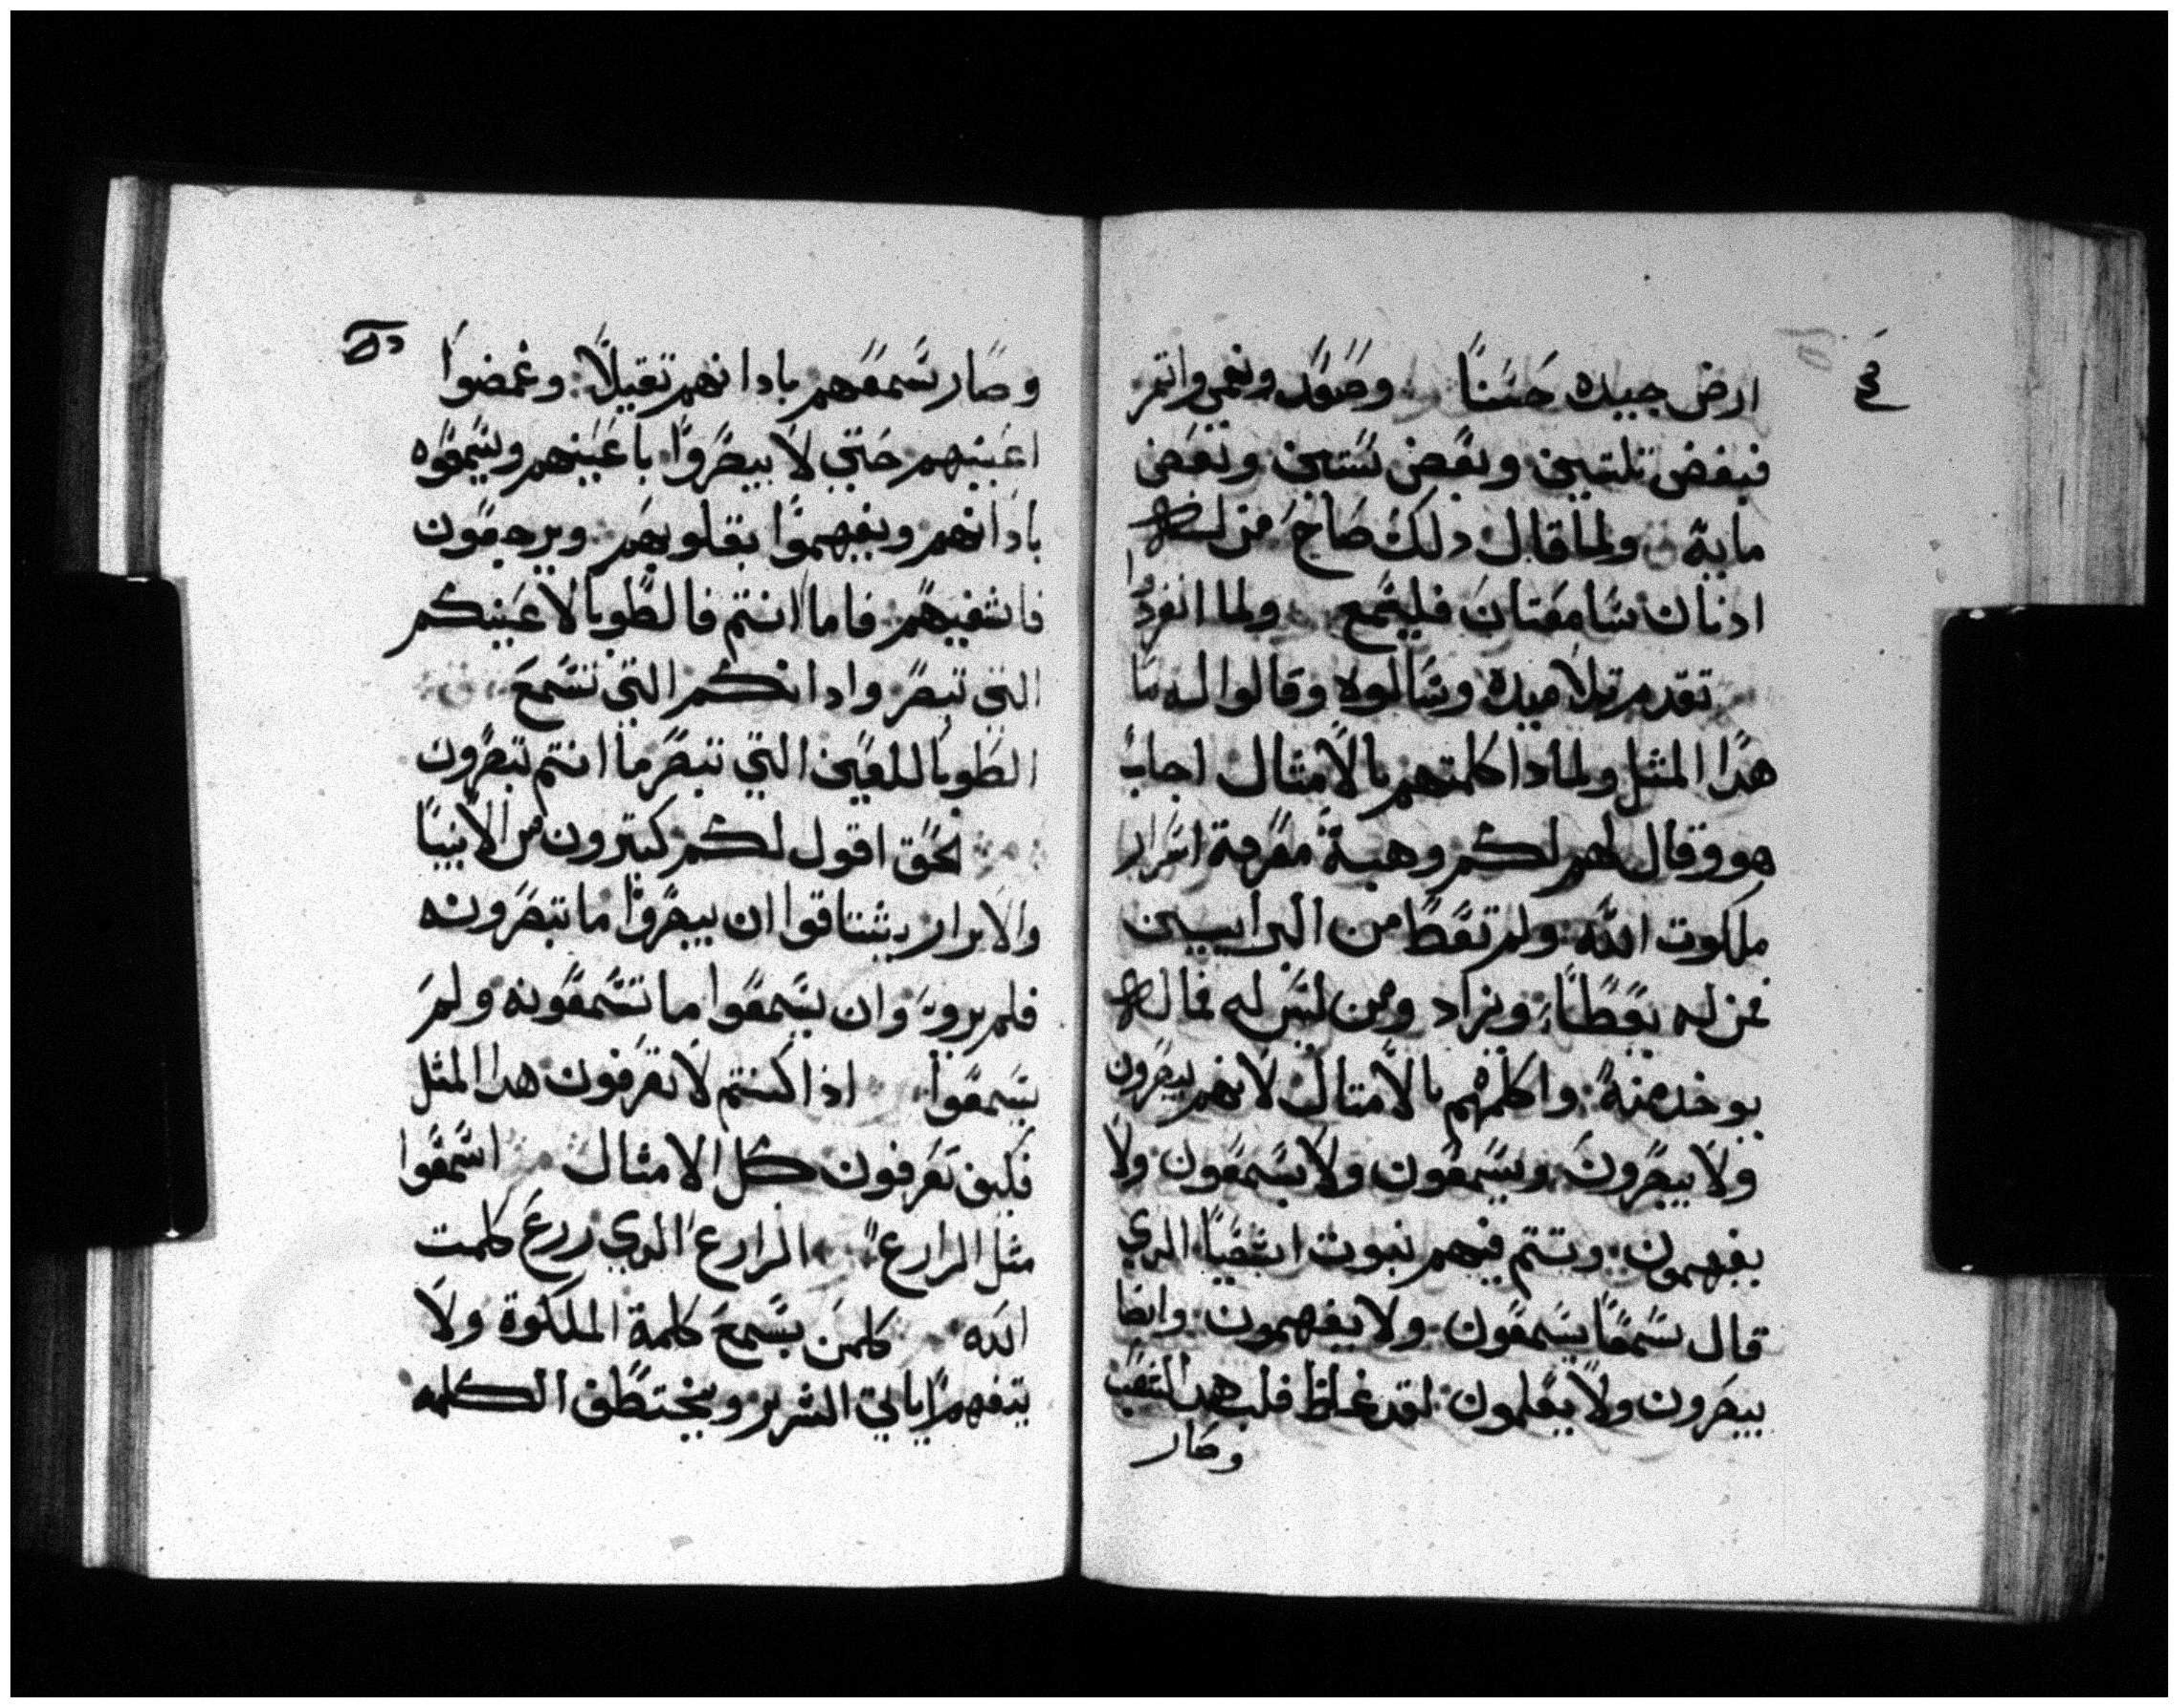 ارض جيده حسنا وصعد ونمي واتمر
فبعض تلتين وبعض ستين وبعض
ماية ولما قال دلك صاح من له
ادنان سامعتان فليسمع ولما انفردوا
تقدم تلاميده وسالوه وقالوا له ما
هدا المثل ولمادا كلمتهم بالامثال اجاب
هو وقال لهم لكم وهبة معرفة اسرار
ملكوت الله ولم تعط من البرانيين
فمن له يعطا ويزاد ومن ليس له فما له
يوخد منه واكلمهم بالامتال لانهم يبصرون
ولا يبصرون ويسمعون ولا يسمعون ولا
يفهمون وتتم فيهم نبوت اشعيا الدي
قال سمعا يسمعون ولا يفهمون وايضا
يبصرون ولا يعلمون لقد غلظ قلب هدا الشعب
وصار
وصار سمعهم بادانهم تقيلا وغمضوا
اعينهم حتي لا يبصروا باعينهم ويسمعوه
بادانهم ويفهموا بقلوبهم ويرجعون
فاشفيهم فاما انتم فالطوبا لاعينكم
التي تبصر وادانكم التي تسمع
الطوبا للعين التي تبصر ما انتم تبصرون
بحق اقول لكم كتيرون من الانبيا
والابرار يشتاقوا ان يبصروا ما تبصرونه
فلم يرو وان يسمعوا ما تسمعونه ولم
يسمعوا اذا كنتم لا تعرفون هدا المثل
فكيف تعرفون كل الامثال اسمعوا
مثل الزارع الزارع الدي زرع كلمت
الله كلمن يسمع كلمة الملكوة ولا
يتفهم ياتي الشرير ويختطف الكلمه